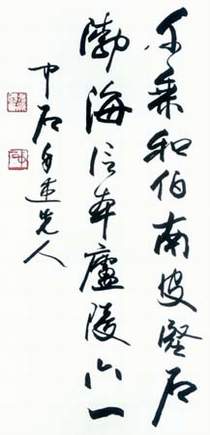 千乘和伯南皮堅石
渤海信本廬陵六一
中石自述先人